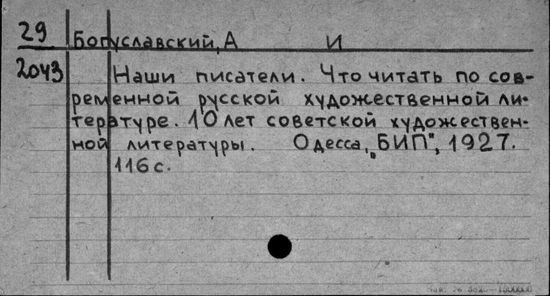 29
Богуславский, А И
2043
Наши писатели. Что читать по сов-
ременной русской художественной ли-
тературе. 10 лет советской художествен-
ной литературы. Одесса, „БИП", 1927.
116 с.